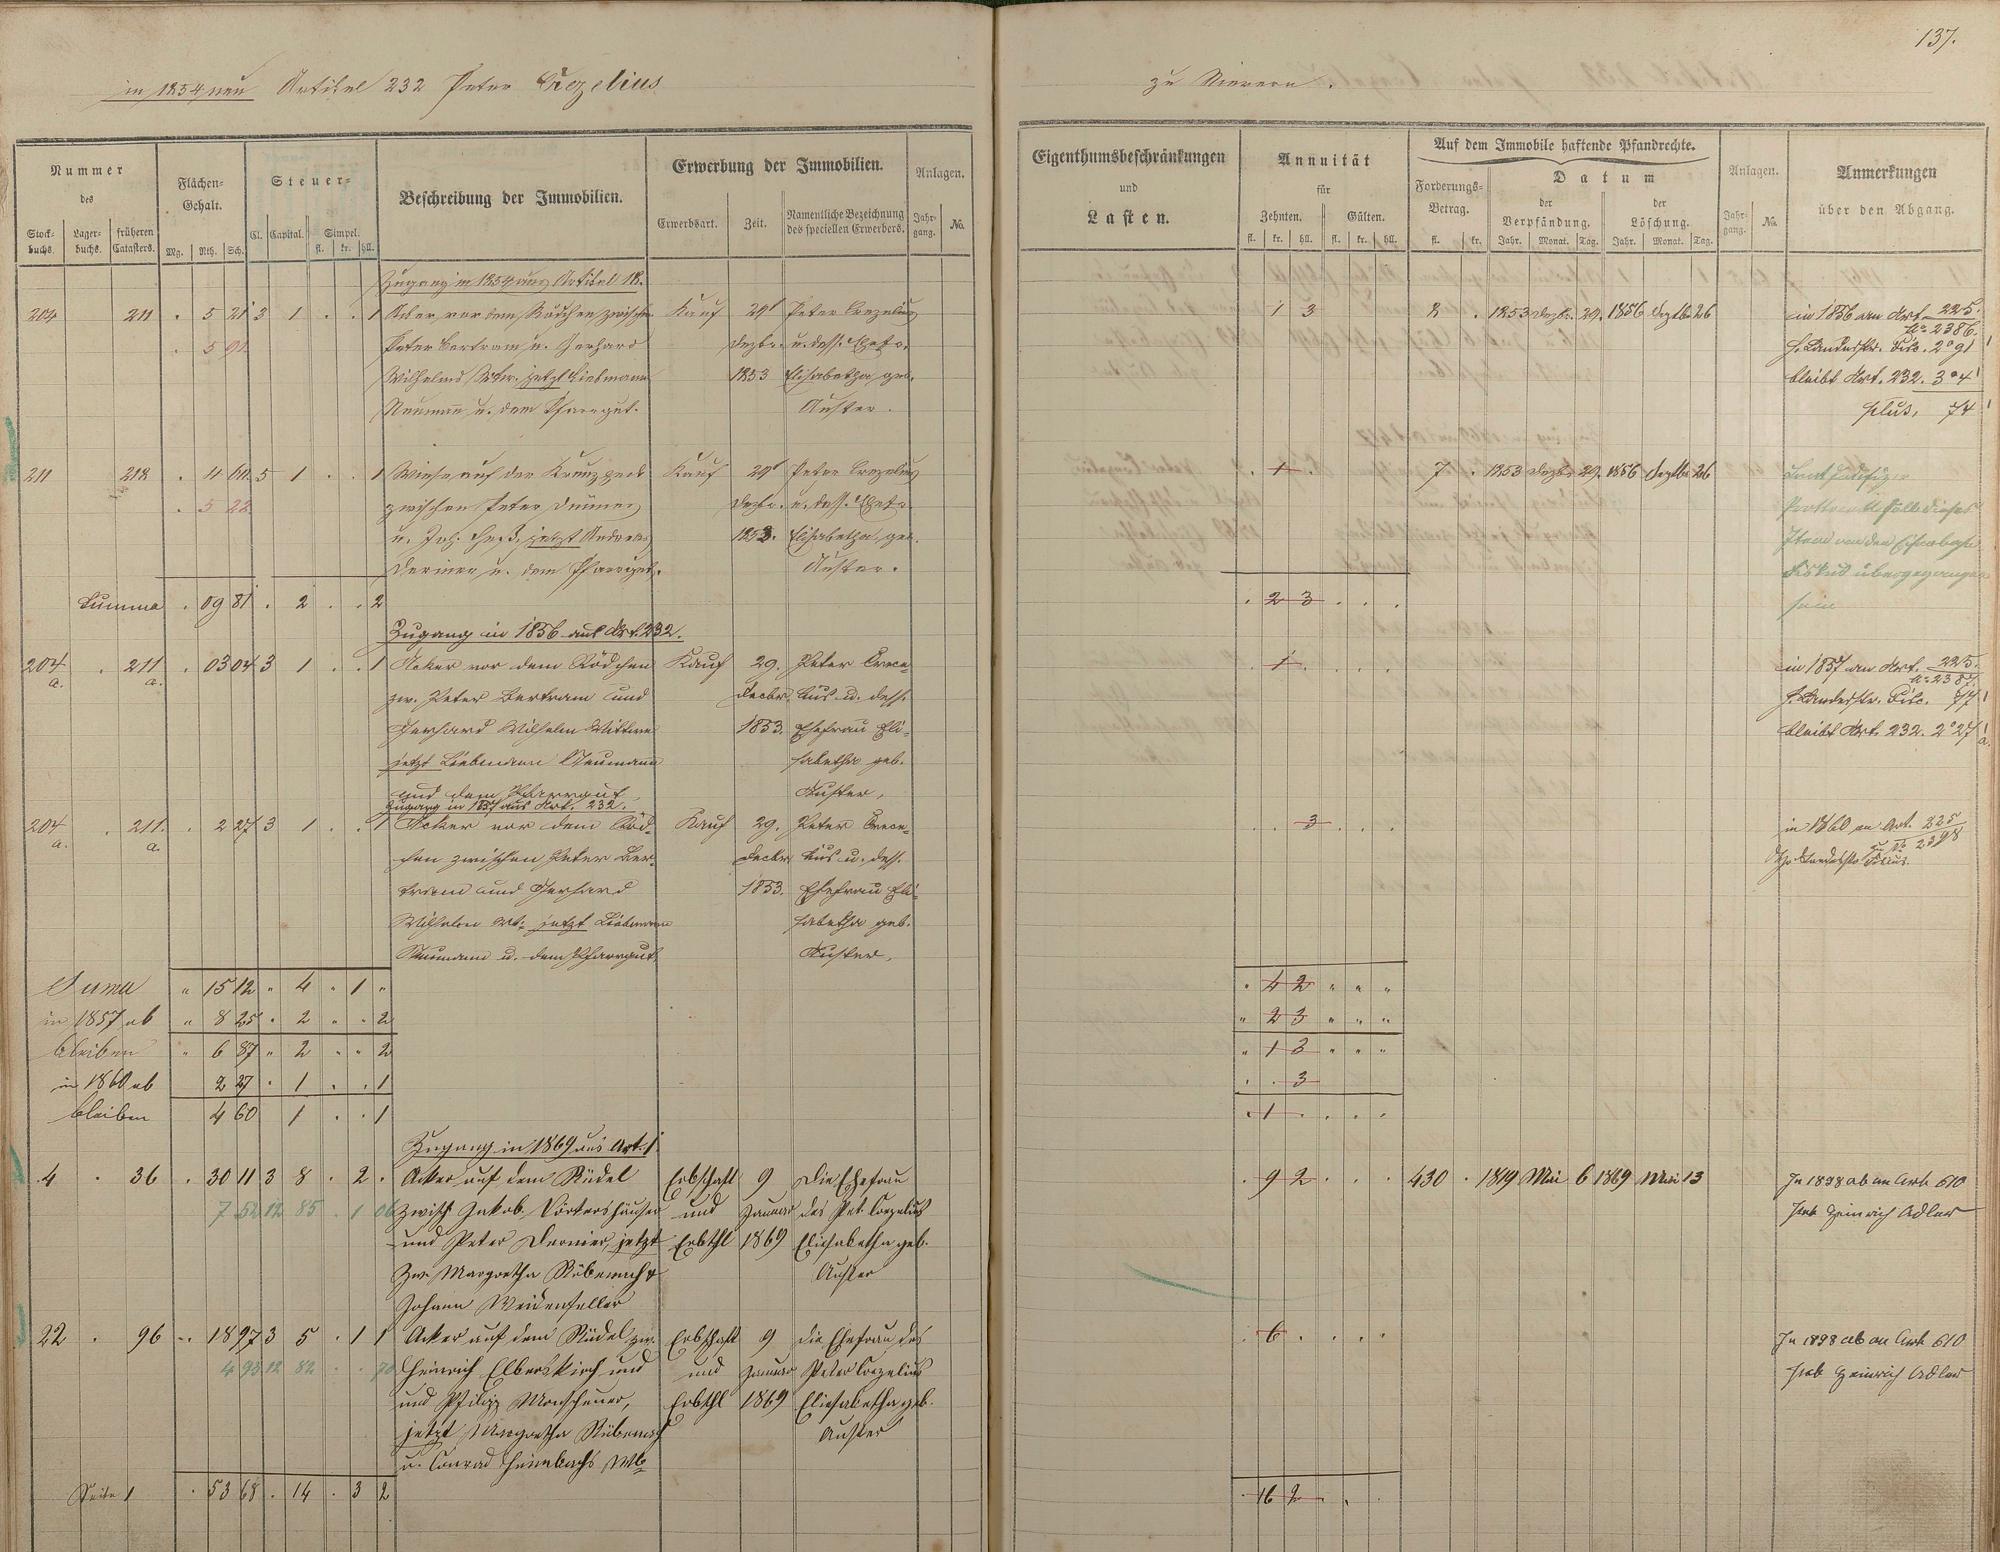 137.
in 1854 neu Artikel 232 Peter Crezelius
zu Nievern.
Nummer
des
Stock-
buchs.
Lager-
buchs.
früheren
Catasters.
Flächen-
Gehalt.
Mg. Rth. Sch.
Steuer-
Cl. Capital. Simpel.
fl. kr. hll.
Beschreibung der Immobilien.
Erwerbung der Immobilien.
Erwerbsart. Zeit. Namentliche Bezeichnung
des speciellen Erwerbers.
Anlagen.
Jahr-
gang.
No.
Eigenthumsbeschränkungen
und
Lasten.
Annuität
für
Zehnten. Gülten.
fl. kr. hll. fl. kr. hll.
Auf dem Immobile haftende Pfandrechte.
Forderungs-
Betrag.
fl. kr.
Datum
der
Verpfändung.
der
Löschung.
Jahr. Monat. Tag. Jahr. Monat. Tag.
Anlagen.
Jahr-
gang.
No.
Anmerkungen
über den Abgang.
Zugang in 1854 aus Artikel 18.
204 211 . 5 21 3 1 . . 1 Acker vor dem Rödchen zwischen Kauf 29 Peter Crezelius 1 3 . 1853 Dezbr. 29. 1856 Deztbr 26 in 1856 an Art. 225.
No 2386.
. 5 91 Peter Bertram u. Gerhard Dezbr. u. dess. Ehefr. 2 91
Wilhelms Wtw. jetzt Liebmann 1853 Elisabetha, geb. bleibt Art. 232. 3 04
Neumann u. dem Pfarrgut. Auster. plus, 74
211 218 . 4 60 5 1 . . 1 Wiese auf der Kauf 29 Peter Crezelius 1 . 7 . 1853 Dezbr. 29. 1856 Deztbr 26
. 5 28 zwischen Peter Dezbr. u. dess. Ehefr.
u. Joh. jetzt Andreas 1853. Elisabetha, geb.
Dernier u. dem Pfarrgut. Auster.
Summa . 09 81 . 2 . . 2 . 2 3 . . .
Zugang in 1856 aus Art. 232.
204 a. . 211 a. . 03 04 3 1 . . 1 Acker vor dem Rödchen Kauf 29. Peter Creze- . 1 . . . . in 1857 an Art. 225.
No 2387.
zw. Peter Bertram und Decbr. lius u. dess. 77
Gerhard Wilhelm Wittwe 1853. Ehefrau Eli- bleibt Art. 232. 2 27
jetzt Liebmann Neumann sabetha geb.
und dem Pfarrgut Auster.
Zugang in 1857 aus Art. 232.
204 a. . 211. a. . 2 27 3 1 . . 1 Acker vor dem Röd- Kauf 29. Peter Creze- . . 3 . . . in 1860 an Art. 225
chen zwischen Peter Ber- Decbr. lius u. dess.
tram und Gerhard 1853. Ehefrau Eli-
Wilhelm Wt. jetzt Liebmann sabetha geb.
Neumann u. dem Pfarrgut. Auster.
Suma " 15 12 " 4 " 1 " " 4 2 " " "
in 1857 ab " 8 25 . 2 " . 2 " 2 3 " " "
bleiben " 6 87 " 2 " " 2 " 1 3 " " "
in 1860 ab 2 27 . 1 . . 1 . . 3
bleiben 4 60 1 . . 1 . 1 . . . .
Zugang in 1869 aus Art. 1
4 . 36 . 30 11 3 8 . 2 . Acker auf dem Rüdel Erbschaft 9 Die Ehefrau . 9 2 . . . 430 . 1819 Mai 6 1869 Mai 13 In 1898 ab an Art 610
7 52 12 85 . 1 06 zwisch Jakob Vörtershäuser und Januar des Pet. Crezelius Jakob Heinrich Adler
und Peter Dernier, jetzt Erbthl 1869 Eliesabetha geb.
zw. Margretha Rübenach & Auster
Johann Weidenfeller
22 . 96 . . 18 97 3 5 . 1 1 Acker auf dem Rüdel zw. Erbschaft 9 die Ehefrau des . 6 . . . . In 1898 ab an Art 610
4 93 12 82 . . 70 Heinrich Elberskirch und und Januar Peter Crezelius Jakob Heinrich Adler
und Philipp Monscheuer, Erbthl 1869 Eliesabetha geb.
jetzt Margretha Rübenach Auster
u. Conrad Heimbachs Wb
Seite 1 . 53 68 . 14 . 3 2 . 16 2 . . .